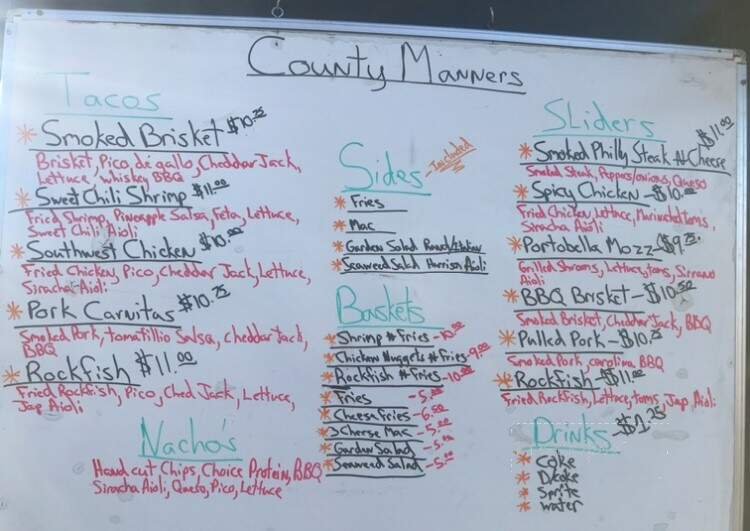 County Manners
Tacos
* Smoked Brisket $10.25
Brisket, Pico, de gallo, Cheddar Jack,
Lettuce, whiskey BBQ
* Sweet Chili Shrimp $11.00
Fried Shrimp, Pineapple Salsa, Feta, Lettuce,
Sweet Chili Aioli
* Southwest Chicken $10.00
Fried Chicken, Pico, Cheddar Jack, Lettuce,
Siracha Aioli
* Pork Carnitas $10.75
Smoked Pork, tomatillio Salsa, cheddar Jack,
BBQ
* Rockfish $11.00
Fried Rockfish, Pico, Ched Jack, Lettuce,
Jap Aioli
Nacho's
Hand cut Chips, Choice Protein, BBQ
Siracha Aioli, Queso, Pico, Lettuce
Sides - Included
* Fries
* Mac
* Garden Salad Ranch/Italian
* Seaweed Salad Harrisa Aioli
Baskets
* Shrimp # Fries - 10.00
* Chicken Nuggets # Fries - 9.00
* Rockfish # Fries - 10.00
* Fries - 5.00
* Cheese Fries - 6.00
* Cheese Mac - 5.00
* Garden Salad - 5.00
* Seaweed Salad - 5.00
Sliders
* Smoked Philly Steak # Cheese $11.00
Smoked Steak, Peppers/onions, Queso
* Spicy Chicken - $10.00
Fried Chicken, Lettuce, Marinated Toms,
Siracha Aioli
* Portobella Mozz $9.75
Grilled Shrooms, Lettuce, toms, Sirrano
Aioli
* BBQ Brisket - $10.50
Smoked Brisket, Cheddar Jack, BBQ
* Pulled Pork - $10.25
Smoked Pork, carolina BBQ
* Rockfish - $11.00
Fried Rockfish, Lettuce, toms, Jap Aioli
Drinks - $1.25
* coke
* D.coke
* Sprite
* water